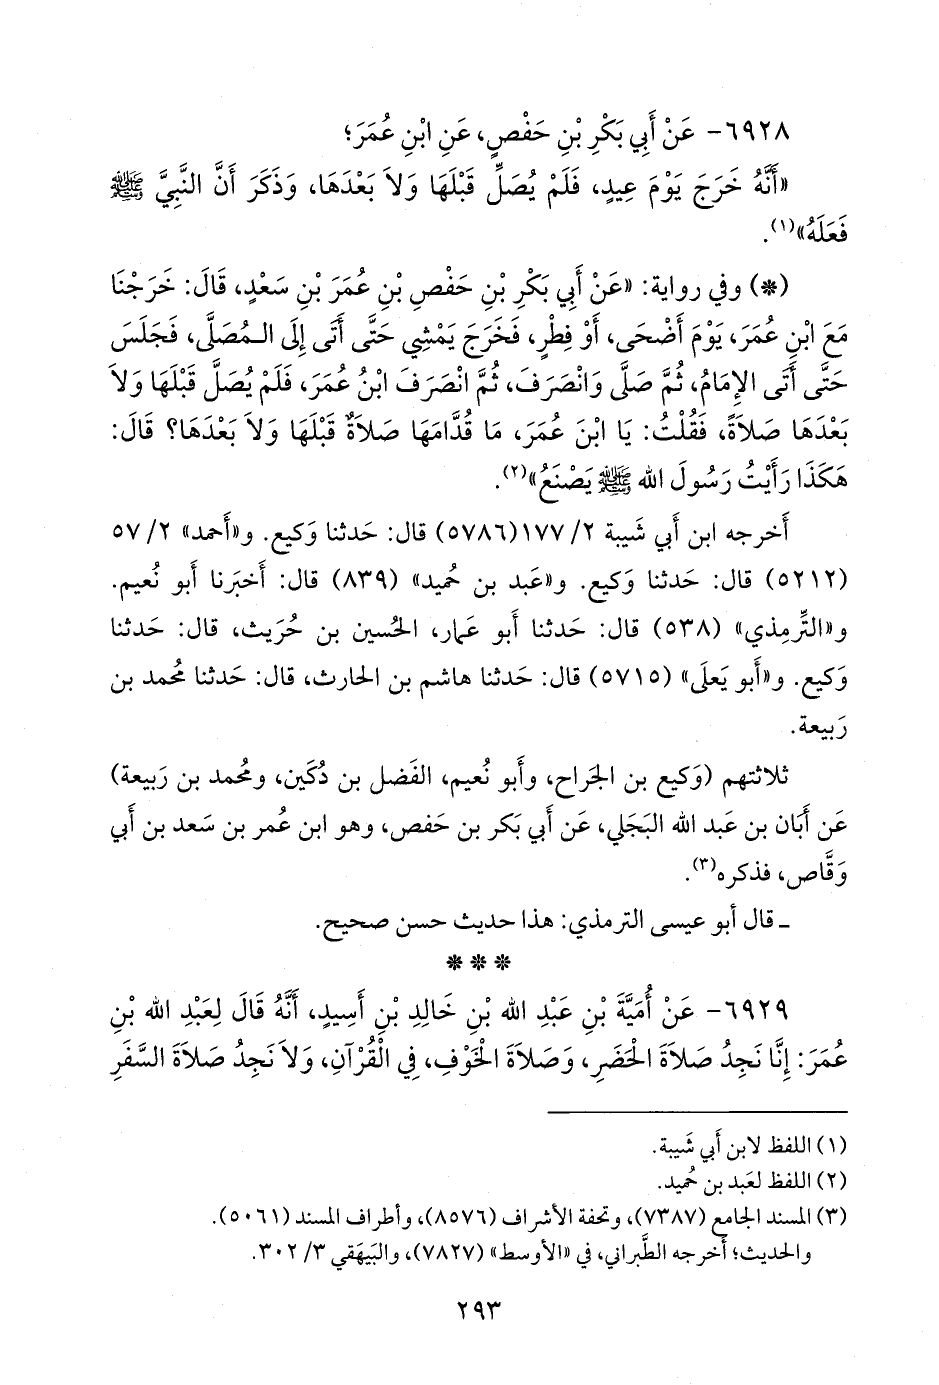 ٦٩٢٨- عَنْ أَبِي بَكْرِ بْنِ حَفْصٍ، عَنِ ابْنِ عُمَرَ؛
«أَنَّهُ خَرَجَ يَوْمَ عِيدٍ، فَلَمْ يُصَلِّ قَبْلَهَا وَلاَ بَعْدَهَا، وَذَكَرَ أَنَّ النَّبِيَّ ﷺ
فَعَلَهُ»(١).
(*) وفي رواية: «عَنْ أَبِي بَكْرِ بْنِ حَفْصِ بْنِ عُمَرَ بْنِ سَعْدٍ، قَالَ: خَرَجْنَا
مَعَ ابْنِ عُمَرَ، يَوْمَ أَضْحَى، أَوْ فِطْرٍ، فَخَرَجَ يَمْشِي حَتَّى أَتَى إِلَى الـمُصَلَّى، فَجَلَسَ
حَتَّى أَتَى الإِمَامُ، ثُمَّ صَلَّى وَانْصَرَفَ، ثُمَّ انْصَرَفَ ابْنُ عُمَرَ، فَلَمْ يُصَلِّ قَبْلَهَا وَلاَ
بَعْدَهَا صَلاَةً، فَقُلْتُ: يَا ابْنَ عُمَرَ، مَا قُدَّامَهَا صَلاَةٌ قَبْلَهَا وَلاَ بَعْدَهَا؟ قَالَ:
هَكَذَا رَأَيْتُ رَسُولَ الله ﷺ يَصْنَعُ»(٢).
أَخرجه ابن أَبي شَيبة ٢/ ١٧٧(٥٧٨٦) قال: حَدثنا وَكيع. و«أَحمد» ٢/ ٥٧
(٥٢١٢) قال: حَدثنا وَكيع. و«عَبد بن حُميد» (٨٣٩) قال: أَخبَرنا أَبو نُعيم.
و«التِّرمِذي» (٥٣٨) قال: حَدثنا أَبو عَمار، الحُسين بن حُرَيث، قال: حَدثنا
وَكيع. و«أَبو يَعلَى» (٥٧١٥) قال: حَدثنا هاشم بن الحارث، قال: حَدثنا مُحمد بن
رَبيعة.
ثلاثتهم (وَكيع بن الجَراح، وأَبو نُعيم، الفَضل بن دُكَين، ومُحمد بن رَبيعة)
عَن أَبَان بن عَبد الله البَجَلي، عَن أَبي بَكر بن حَفص، وهو ابن عُمر بن سَعد بن أَبي
وَقَّاص، فذكره(٣).
ـ قال أَبو عيسى الترمذي: هذا حديث حسن صحيح.
* * *
٦٩٢٩- عَنْ أُمَيَّةَ بْنِ عَبْدِ الله بْنِ خَالِدِ بْنِ أَسِيدٍ، أَنَّهُ قَالَ لِعَبْدِ الله بْنِ
عُمَرَ: إِنَّا نَجِدُ صَلاَةَ الْحَضَرِ، وَصَلاَةَ الْخَوْفِ، فِي الْقُرْآنِ، وَلاَ نَجِدُ صَلاَةَ السَّفَرِ
(١) اللفظ لابن أَبي شَيبة.
(٢) اللفظ لعَبد بن حُميد.
(٣) المسند الجامع (٧٣٨٧)، وتحفة الأشراف (٨٥٧٦)، وأطراف المسند (٥٠٦١).
والحديث؛ أَخرجه الطَّبراني، في «الأوسط» (٧٨٢٧)، والبَيهَقي ٣/ ٣٠٢.
٢٩٣